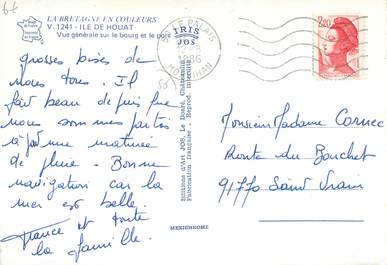 6f
LA BRETAGNE EN COULEURS
V. 1241 - ILE DE HOUAT
Vue générale sur le bourg et le port
grosses bises de
nous tous. Il
fait beau depuis que
nous sommes partis
à part une matinée
de pluie. Bonne
navigation car la
mer est belle.
France et toute
la famille.
IRIS
JOS
Editions d'Art JOS, Le Doaré, Châteaulin
Fabrication française - Reprod. interdite
MEXICHROME
LE PALAIS
MORBIHAN
2,20
Monsieur Madame Cornec
Route du Bouchet
91770 Saint Vrain